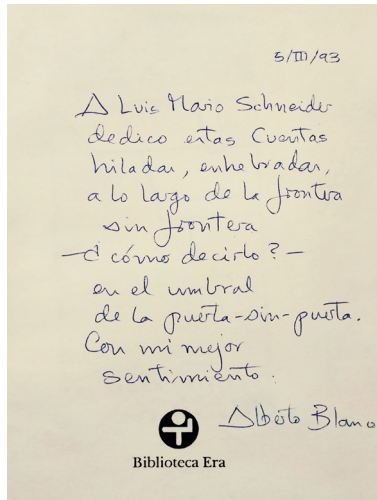 5/III/93
A Luis Mario Schneider
dedico estas Cuentas
hiladas, enhebradas,
a lo largo de la frontera
sin frontera
—¿cómo decirlo?—
en el umbral
de la puerta-sin-puerta.
Con mi mejor
sentimiento.
Alberto Blanco
Biblioteca Era